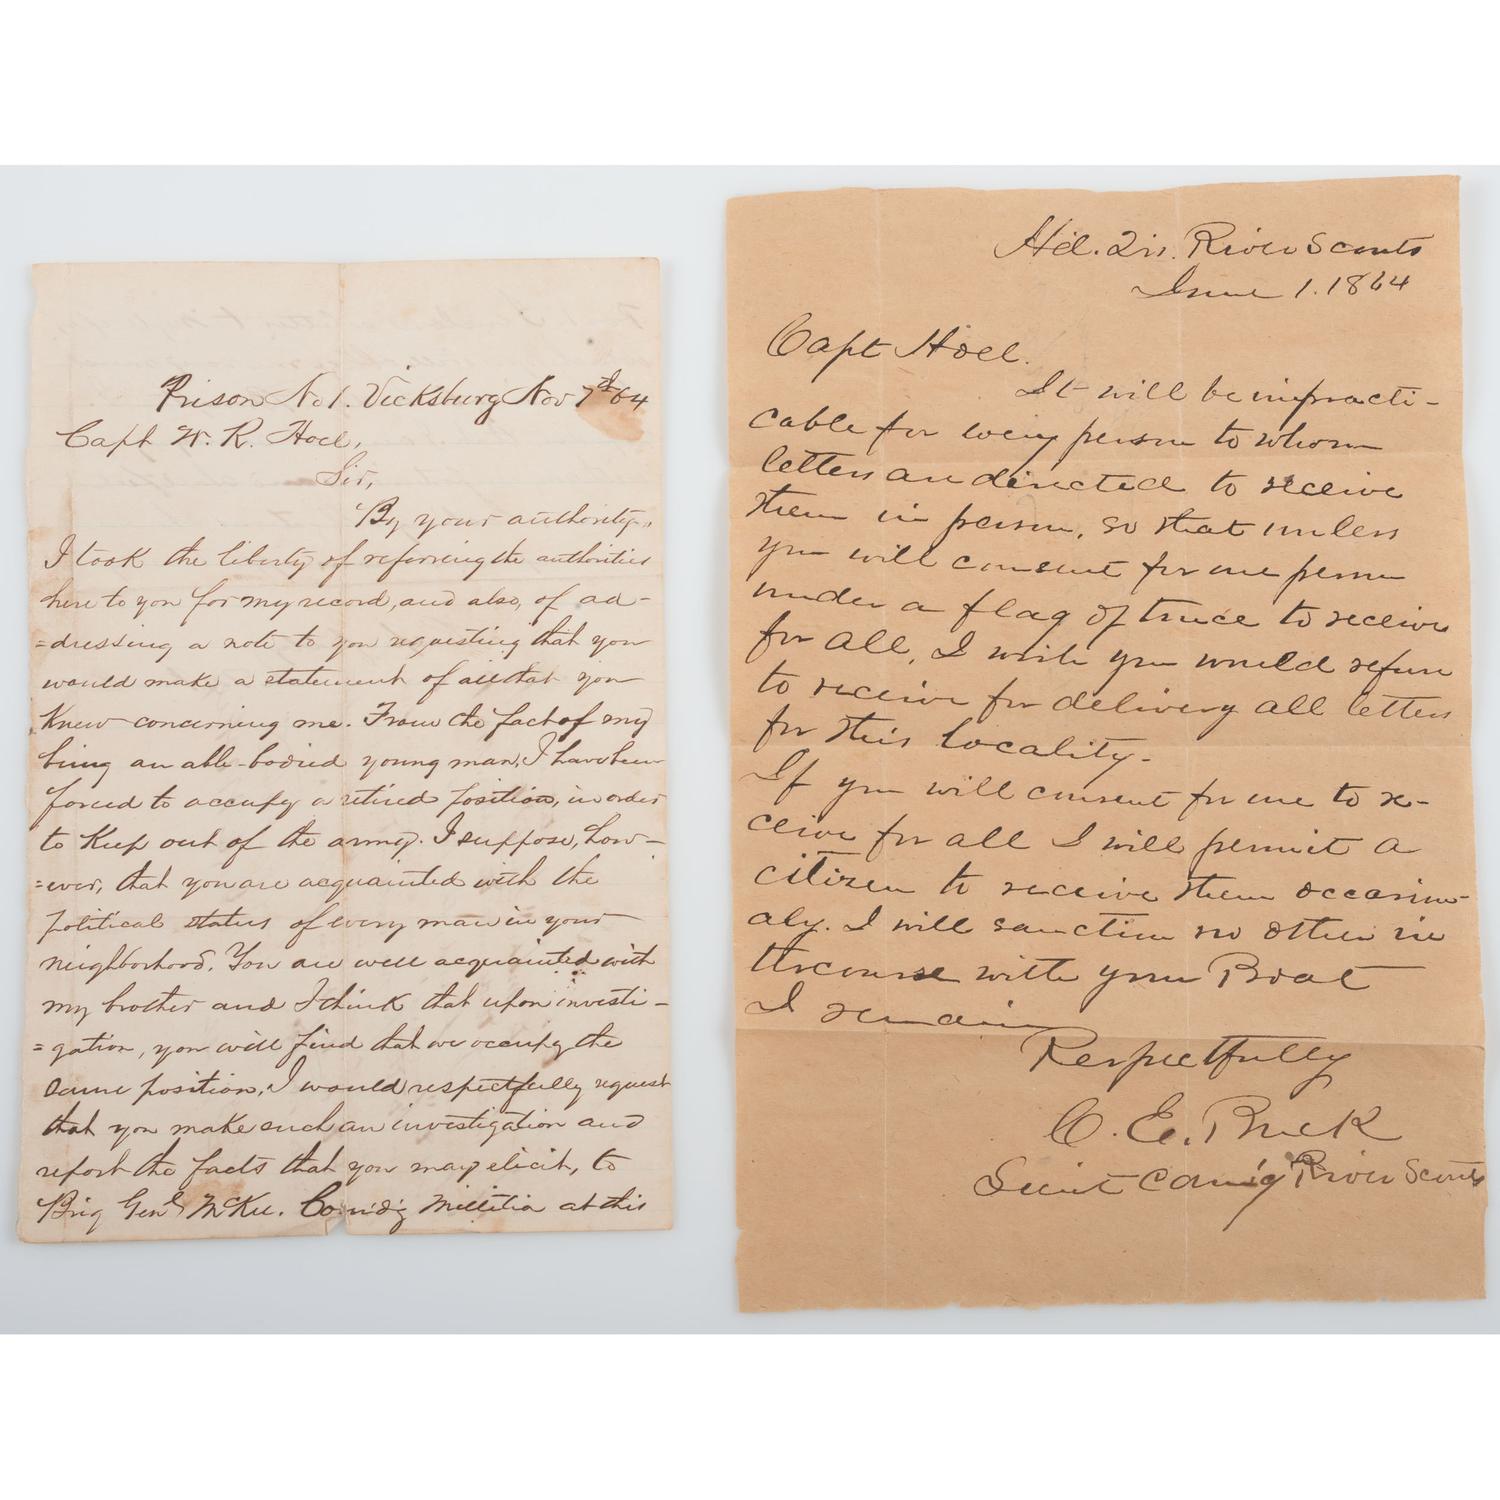 Prison No 1. Vicksburg Nov 7th 64
Capt W. R. Hoel,
Sir,
By your authority,
I took the liberty of referring the authorities
here to you for my record, and also, of ad-
=dressing a note to you requesting that you
would make a statement of all that you
Know concerning me. From the fact of my
being an able-bodied young man, I have been
forced to occupy a retired position, in order
to Keep out of the army. I suppose, how-
=ever, that you are acquainted with the
political status of every man in your
neighborhood. You are well acquainted with
my brother and I think that upon investi-
=gation, you will find that we occupy the
same position. I would respectfully request
that you make such an investigation and
report the facts that you may elicit, to
Brig Genl McKee. Comd'g Millitia at this
Hd. Qrs. River Scouts
June 1. 1864
Capt Hoel.
It will be impracti-
cable for every person to whom
letters are directed to receive
them in person, so that unless
you will consent for one person
under a flag of truce to receive
for all, I wish you would refuse
to receive for delivery all letters
for this locality.
If you will consent for one to re-
ceive for all I will permit a
citizen to receive them occasion-
aly. I will sanction no other in
thrcourse with your Boat
I remain
Respectfully
C. E. Buck
Lieut Com'g River Scouts